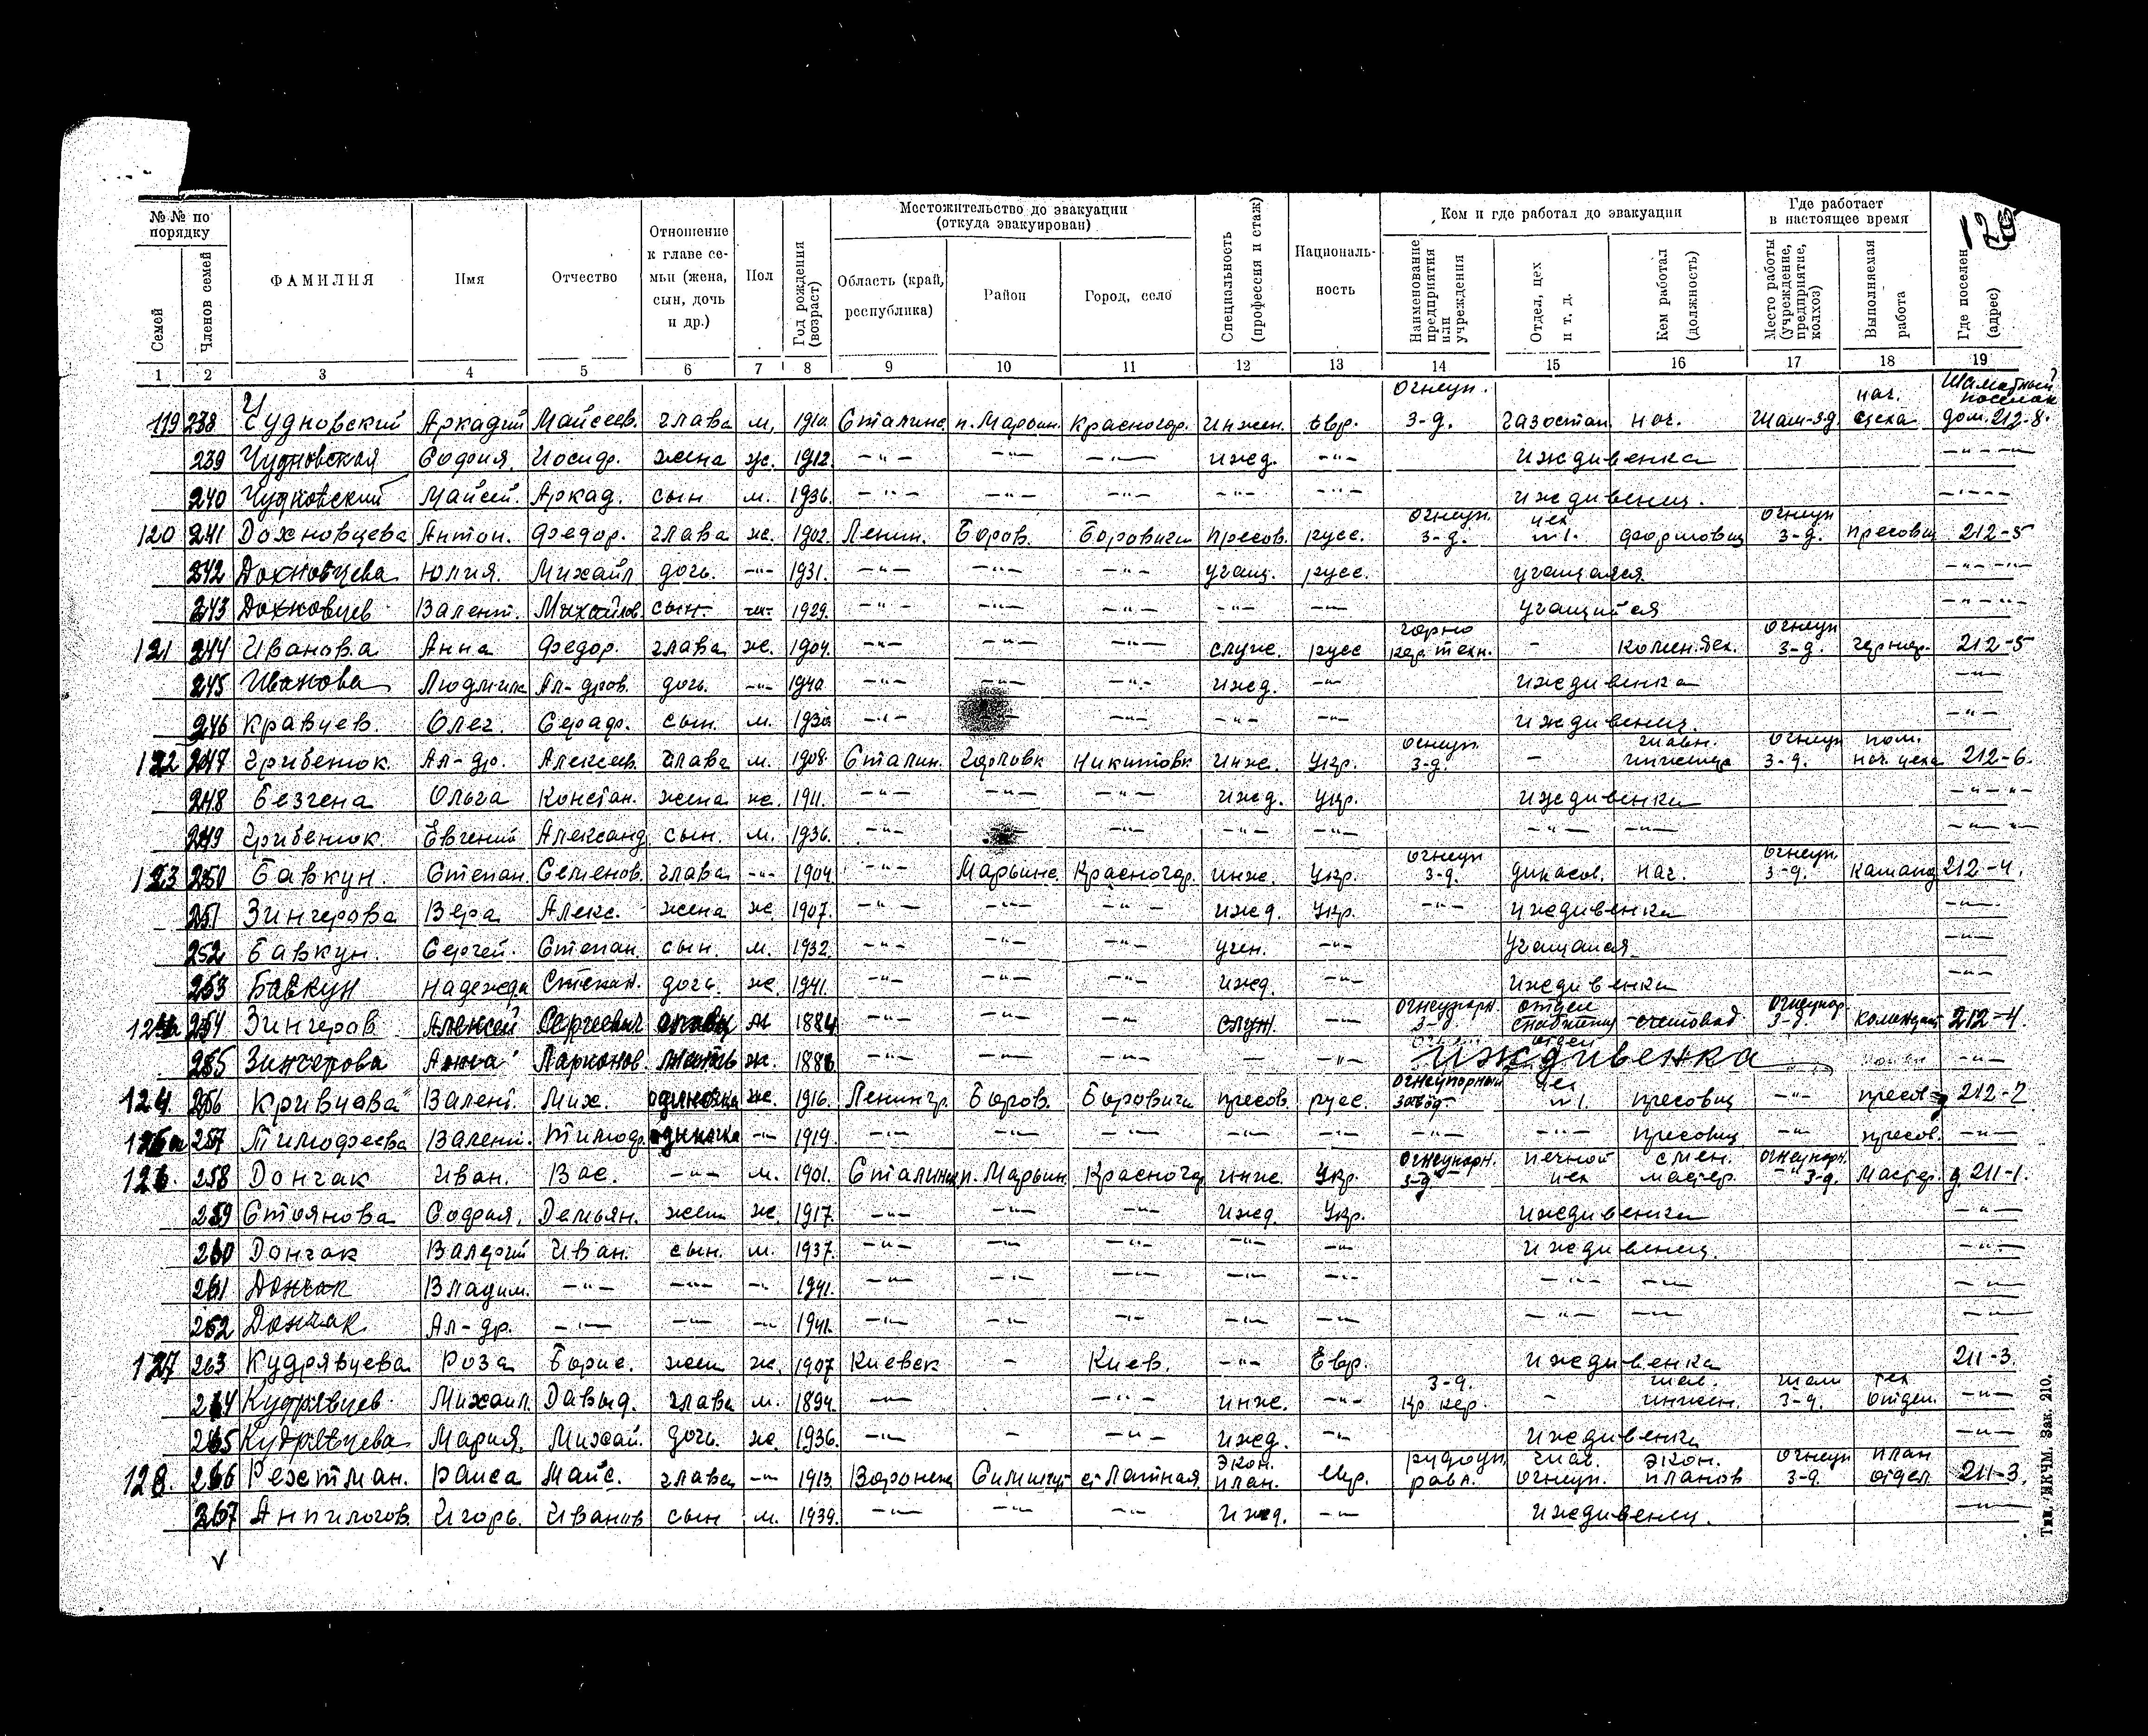 №№ по порядку
Семей
Членов семей
ФАМИЛИЯ
Имя
Отчество
Отношение к главе семьи (жена, сын, дочь и др.)
Пол
Год рождения (возраст)
Местожительство до эвакуации (откуда эвакуирован)
Область (край, республика)
Район
Город, село
Специальность (профессия и стаж)
Националь-ность
Кем и где работал до эвакуации
Наименование предприятия или учреждения
Отдел, цех и т. д.
Кем работал (должность)
Где работает в настоящее время
Место работы (учреждение, предприятие, колхоз)
Выполняемая работа
Где поселен (адрес)
1 2 3 4 5 6 7 8 9 10 11 12 13 14 15 16 17 18 19
119 238 Чудновский Аркадий Майсеев. глава м. 1910. Сталинс. п. Марьин. Красногор. Инжен. Евр. Огнеуп. з-д. Газостан. нач. Шам-з-д. нач. цеха Шамотный поселок дом. 212-8.
239 Чудновская София. Иосиф. жена ж. 1912. -"- -"- -"- ижд. -"- Иждивенка -"-
240 Чудновский Майсей. Аркад. сын м. 1936. -"- -"- -"- -"- -"- иждивенец. -"-
120 241 Дохновцева Антон. Федор. глава ж. 1902. Ленин. Боров. Боровичи Пресов. русс. Огнеуп. з-д. цех №1. формовщ Огнеуп з-д. Пресовщ 212-5
242 Дохновцева Юлия. Михайл дочь. -"- 1931. -"- -"- -"- учащ. русс. учащаяся -"-
243 Дохновцев Валент. Михайлов сын. м. 1929. -"- -"- -"- -"- -"- Учащийся -"-
121 244 Иванова Анна Федор. глава ж. 1904. -"- -"- -"- служ. русс горно кер. техн. - Огнеуп з-д. 212-5
245 Иванова Людмила Ал-дров. дочь. -"- 1940. -"- -"- -"- ижд. -"- Иждивенка -"-
246 Кравцев. Олег. Сераф. сын. м. 1930. -"- -"- -"- -"- -"- Иждивенец. -"-
122 247 Грибенюк. Ал-др. Алексеев. глава м. 1908. Сталин. Горловк Никитовк Инж. Укр. Огнеуп. з-д. - главн. инженер Огнеуп з-д. пом. нач. цеха 212-6.
248 Безгена Ольга Констан. жена ж. 1911. -"- -"- -"- Ижд. Укр. Иждивенка -"-
249 Грибенюк. Евгений Александ. сын. м. 1936. -"- -"- -"- -"- -"- -"- -"-
123 250 Бавкун. Степан. Семенов. глава -"- 1904. -"- Марьинс. Красногор. инж. Укр. Огнеуп з-д. динасов. нач. Огнеуп. з-д. 212-4.
251 Зингерова Вера Алекс. жена ж. 1907. -"- -"- -"- ижд. Укр. -"- Иждивенка -"-
252 Бавкун. Сергей. Степан. сын. м. 1932. -"- -"- -"- учен. -"- Учащаяся -"-
253 Бавкун Надежда Степан. дочь. ж. 1941. -"- -"- -"- ижд. -"- Иждивенка -"-
254 Зингеров Алексей Сергеевич глава м 1884 служ. -"- Огнеупорн. з-д. отдел снабжения счетовод Огнеупор. з-д. комендант 212-4.
255 Зингерова Анна Ларионов. мать ж. -"- -"- -"- - -"- Иждивенка -"-
124. 256 Кривцава Валент. Мих. одиночка ж. 1916. Ленингр. Боров. Боровичи пресов. русс. Огнеупорный завод. цех №1. Пресовщ -"- 212-2
257 Тимофеева Валент. Тимоф. одиночка -"- 1919. -"- -"- -"- -"- -"- -"- -"- Пресовщ -"- пресов. -"-
126. 258 Дончак Иван. Вас. -"- м. 1901. Сталинс п. Марьин. Красногор инж. Укр. Огнеупорн. з-д. печной цех смен. мастер. Огнеупорн. з-д. Мастер. д. 211-1.
259 Стоянова София. Демьян. жен ж. 1917. -"- -"- -"- Ижд. Укр. Иждивенка -"-
260 Дончак Валерий Иван. сын. м. 1937. -"- -"- -"- -"- -"- иждивенец. -"-
261 Дончак Владим. -"- -"- -"- 1941. -"- -"- -"- -"- -"- -"- -"- -"-
262 Дончак Ал-др. -"- -"- -"- 1941. -"- -"- -"- -"- -"- -"- -"- -"-
127 263 Кудрявцева Роза Борис. жен ж. 1907 Киевск - Киев. -"- Евр. Иждивенка 211-3.
264 Кудрявцев. Михаил. Давыд. глава м. 1894. -"- -"- инж. -"- з-д. Кр. кер. - инжен. шам з-д. тех отдел. -"-
265 Кудрявцева Мария. Михай. дочь. ж. 1936. -"- - -"- ижд. -"- Иждивенка -"-
128. 266 Рехтман. Раиса Майс. глава -"- 1913. Воронеж с. Латная экон. план. Евр. огнеуп. экон. планов Огнеуп з-д. план отдел 211-3.
267 Анпилогов. Игорь. Иванов сын м. 1939. -"- -"- -"- Ижд. -"- Иждивенец. -"-
Тип. НКЧМ. Зак. 210.